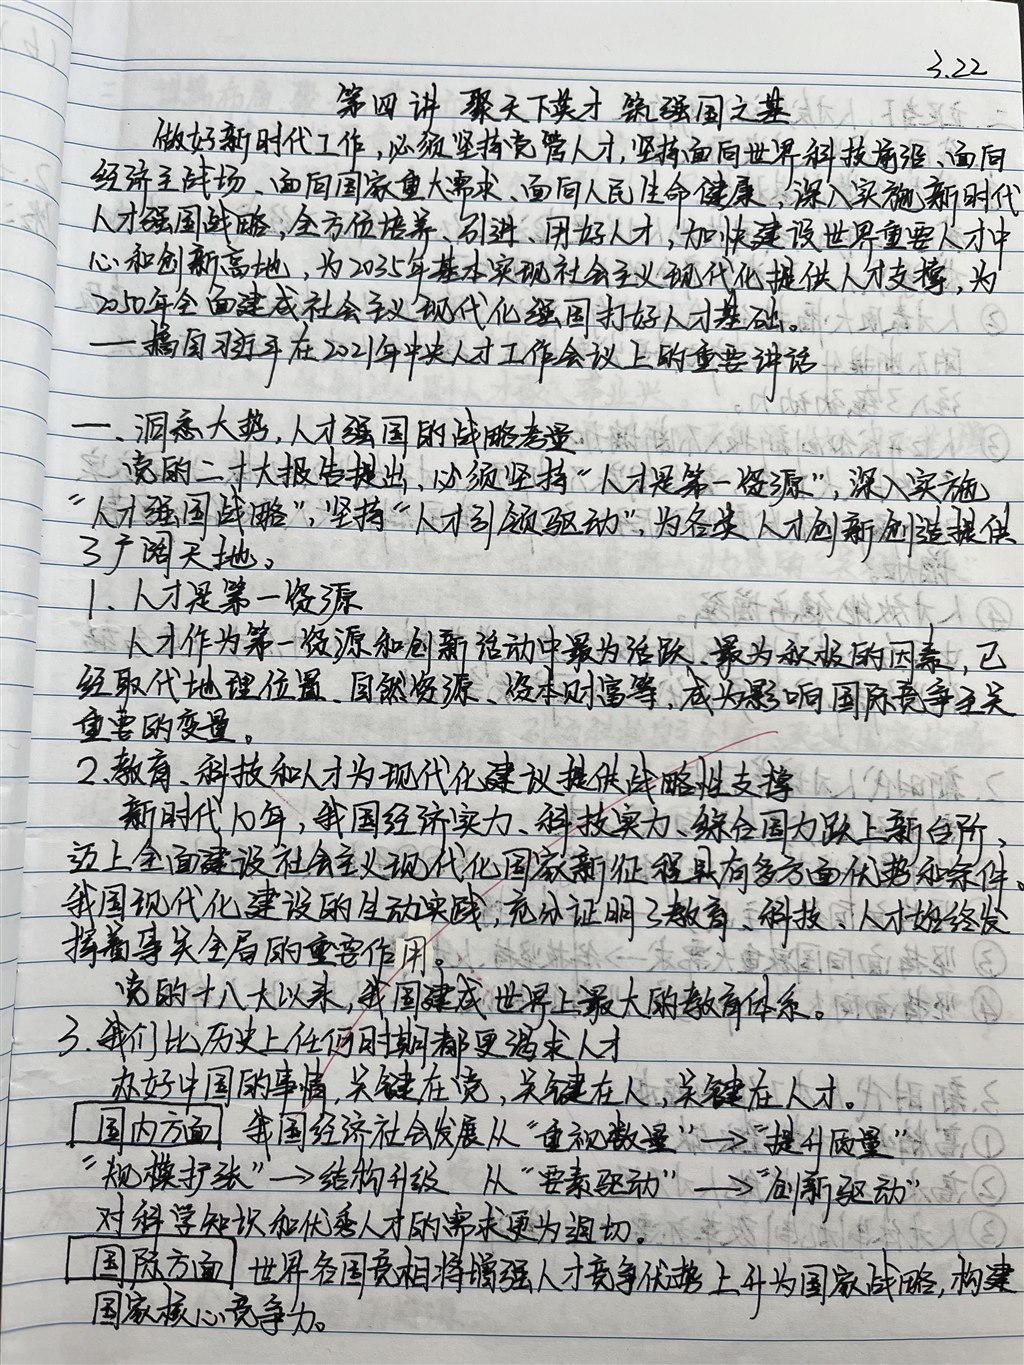 3.22
第四讲 聚天下英才 筑强国之基
做好新时代工作,必须坚持党管人才,坚持面向世界科技前沿、面向
经济主战场、面向国家重大需求、面向人民生命健康,深入实施新时代
人才强国战略,全方位培养、引进、用好人才,加快建设世界重要人才中
心和创新高地,为2035年基本实现社会主义现代化提供人才支撑,为
2050年全面建成社会主义现代化强国打好人才基础。
——摘自习近平在2021年中央人才工作会议上的重要讲话
一、洞悉大势,人才强国的战略考量
党的二十大报告提出,必须坚持“人才是第一资源”,深入实施
“人才强国战略”,坚持“人才引领驱动”,为各类人才创新创造提供
了广阔天地。
1、人才是第一资源
人才作为第一资源和创新活动中最为活跃、最为积极的因素,已
经取代地理位置、自然资源、资本财富等,成为影响国际竞争至关
重要的变量。
2.教育、科技和人才为现代化建议提供战略性支撑
新时代10年,我国经济实力、科技实力、综合国力跃上新台阶,
迈上全面建设社会主义现代化国家新征程具有多方面优势和条件。
我国现代化建设的生动实践,充分证明了教育、科技、人才始终发
挥着事关全局的重要作用。
党的十八大以来,我国建成世界上最大的教育体系。
3.我们比历史上任何时期都更渴求人才
办好中国的事情,关键在党,关键在人,关键在人才。
国内方面 我国经济社会发展从“重视数量”→“提升质量”
“规模扩张”→结构升级 从“要素驱动”→“创新驱动”
对科学知识和优秀人才的需求更为迫切。
国际方面 世界各国竞相将增强人才竞争优势上升为国家战略,构建
国家核心竞争力。